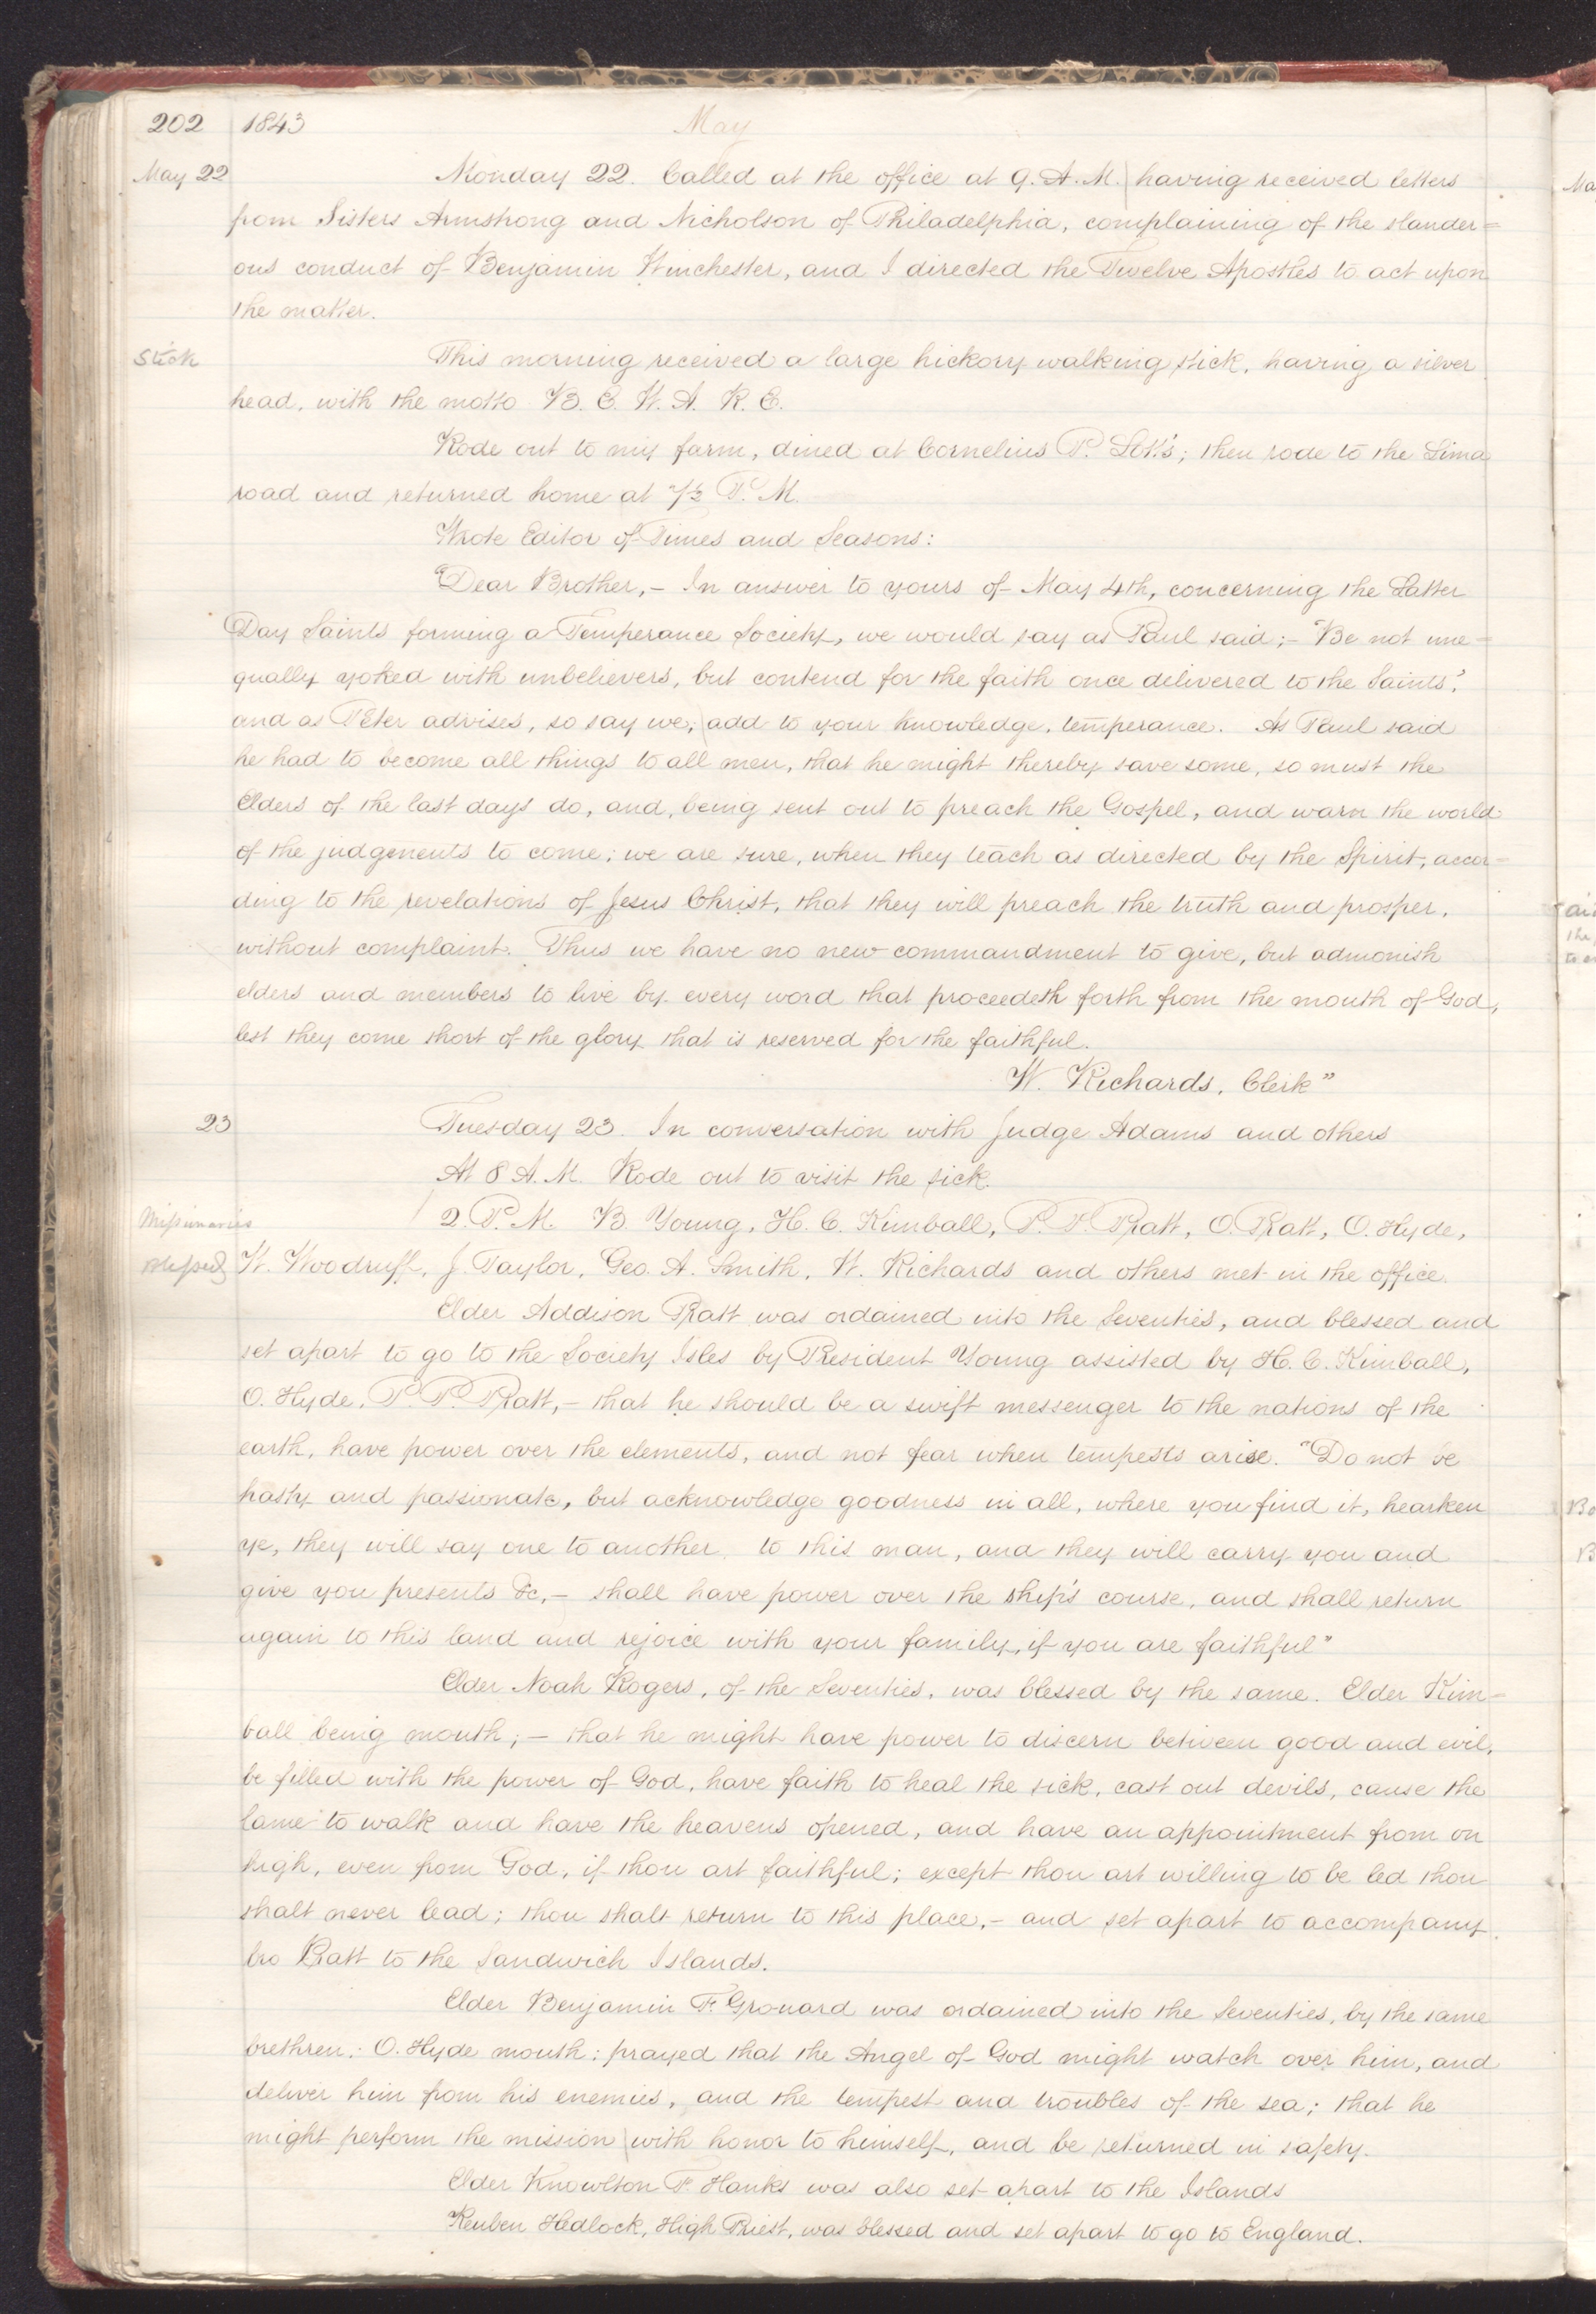 202 1843 May
May 22 Monday 22. Called at the office at 9. A. M. having received letters
from Sisters Armstrong and Nicholson of Philadelphia, complaining of the slander=
ous conduct of Benjamin Winchester, and I directed the Twelve Apostles to act upon
the matter.
Stick This morning received a large hickory walking stick, having a silver
head, with the motto B. E. W. A. R. E.
Rode out to my farm, dined at Cornelius P. Lott's; then rode to the Lima
road and returned home at ½ P. M.
Wrote Editor of Times and Seasons:
"Dear Brother,– In answer to yours of May 4th, concerning the Latter
Day Saints forming a Temperance Society, we would say as Paul said;– "Be not une=
qually yoked with unbelievers, but contend for the faith once delivered to the Saints";
and as PEter advises, so say we, add to your knowledge, temperance. As Paul said
he had to become all things to all men, that he might thereby save some, so must the
elders of the last days do, and, being sent out to preach the Gospel, and warn the world
of the judgements to come; we are sure, when they teach as directed by the Spirit, accor=
ding to the revelations of Jesus Christ, that they will preach the truth and prosper,
without complaint. Thus we have no new commandment to give, but admonish
elders and members to live by every word that proceedeth forth from the mouth of God,
lest they come short of the glory that is reserved for the faithful.
W. Richards, Clerk"
23 Tuesday 23. In conversation with Judge Adams and others
At 8 A. M. Rode out to visit the sick.
Missionaries 2. P. M. B Young, H. C. Kimball, P. P. Pratt, O. Pratt, O. Hyde,
blessed W. Woodruff, J. Taylor, Geo. A. Smith, W. Richards and others met in the office.
Elder Addison Pratt was ordained into the Seventies, and blessed and
set apart to go to the Society Isles by President Young assisted by H. C. Kimball,
O. Hyde, P. P. Pratt,– that he should be a swift messenger to the nations of the
earth, have power over the elements, and not fear when tempests arise. "Do not be
hasty and passionate, but acknowledge goodness in all, where you find it, hearken
ye, they will say one to another, to this man, and they will carry you and
give you presents &c,– shall have power over the ship's course, and shall return
again to this land and rejoice with your family, if you are faithful"
Elder Noah Rogers, of the Seventies, was blessed by the same. Elder Kim=
ball being mouth;– that he might have power to discern between good and evil,
be filled with the power of God, have faith to heal the sick, cast out devils, cause the
lame to walk and have the heavens opened, and have an appointment from on
high, even from God, if thou art faithful; except thou art willing to be led thou
shalt never lead; thou shalt return to this place,– and set apart to accompany
bro Pratt to the Sandwich Islands.
Elder Benjamin F. Grouard was ordained into the Seventies, by the same
brethren: O. Hyde mouth: prayed that the Angel of God might watch over him, and
deliver him from his enemies, and the tempest and troubles of the sea; that he
might perform the mission with honor to himself, and be returned in safety.
Elder Knowlton F. Hanks was also set apart to the Islands
Reuben Hedlock, High Priest, was blessed and set apart to go to England.